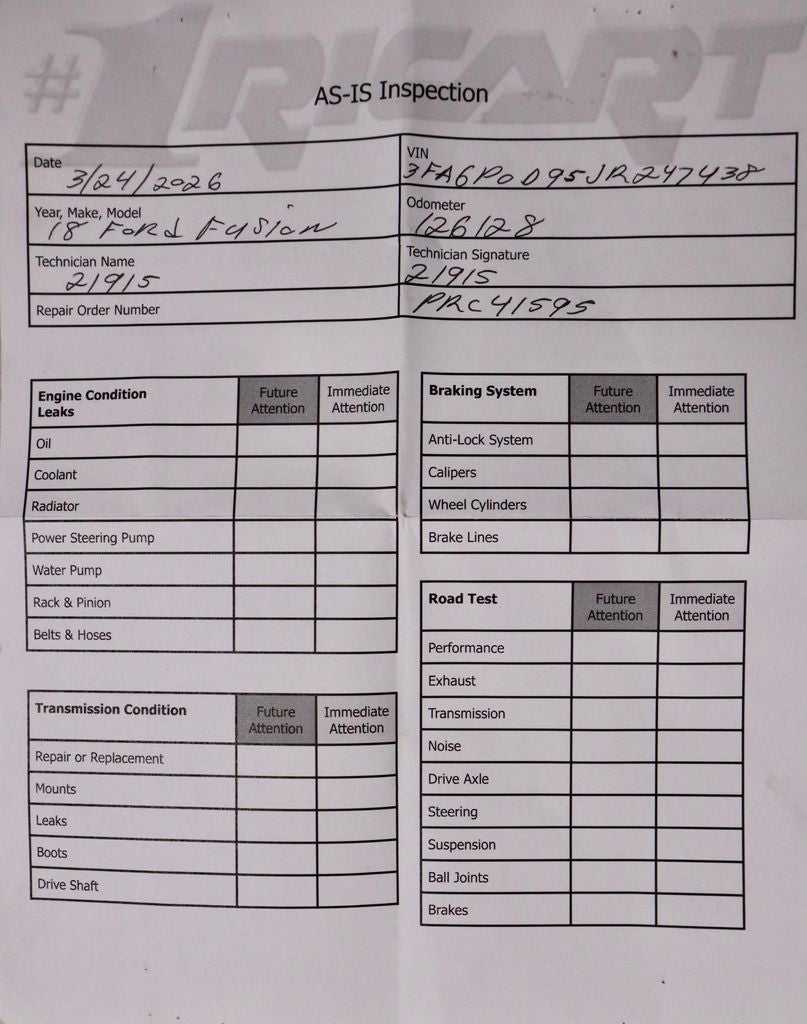 #1RICART
AS-IS Inspection
Date 3/24/2026
VIN 3FA6P0D95JR247438
Year, Make, Model 18 Ford Fusion
Odometer 126128
Technician Name 21915
Technician Signature 21915
Repair Order Number PRC41595
Engine Condition Leaks
Future Attention
Immediate Attention
Oil
Coolant
Radiator
Power Steering Pump
Water Pump
Rack & Pinion
Belts & Hoses
Transmission Condition
Future Attention
Immediate Attention
Repair or Replacement
Mounts
Leaks
Boots
Drive Shaft
Braking System
Future Attention
Immediate Attention
Anti-Lock System
Calipers
Wheel Cylinders
Brake Lines
Road Test
Future Attention
Immediate Attention
Performance
Exhaust
Transmission
Noise
Drive Axle
Steering
Suspension
Ball Joints
Brakes